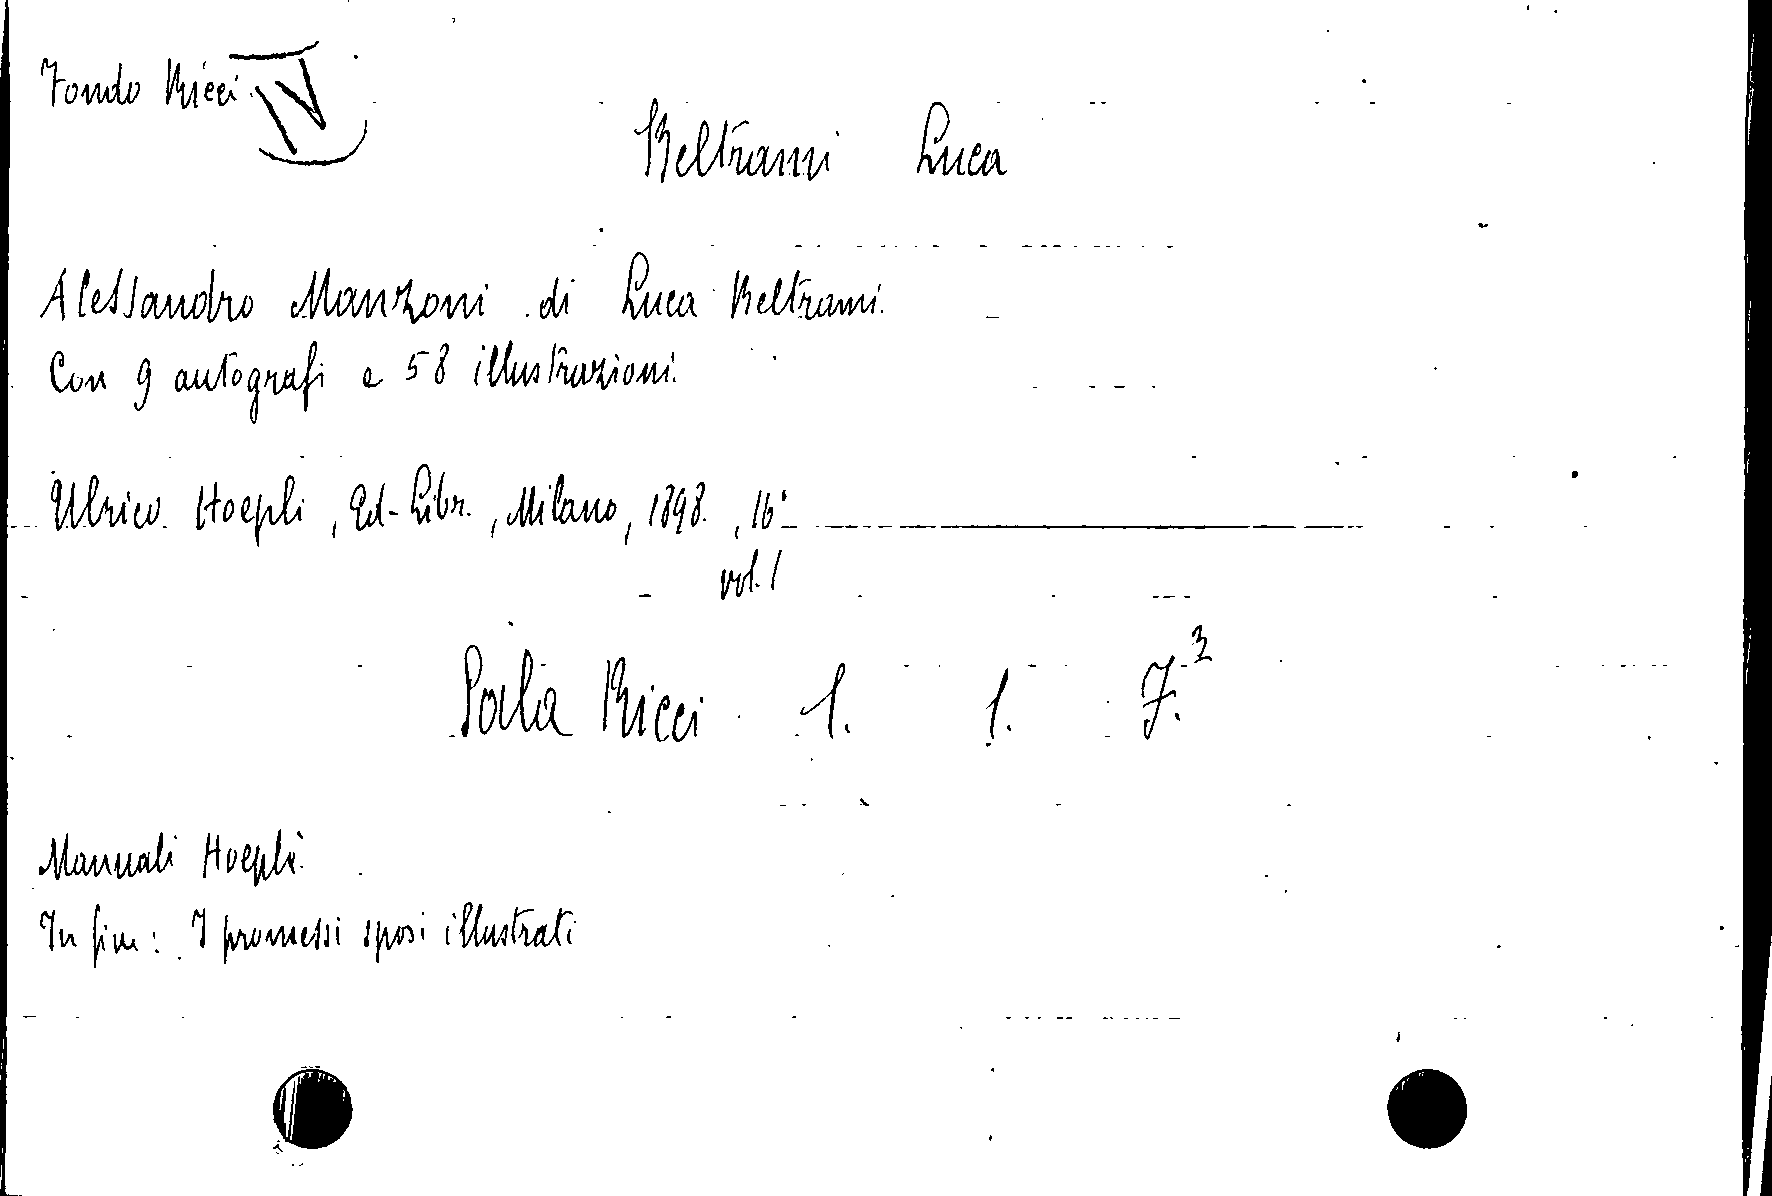 Fondo Ricci IV
Beltrami Luca
Alessandro Manzoni di Luca Beltrami.
Con 9 autografi e 58 illustrazioni.
Ulrico Hoepli, Ed-Libr., Milano, 1898., 16°
vol. 1
Sala Ricci 1. 1. 7.²
Manuali Hoepli.
In fine: I promessi sposi illustrati